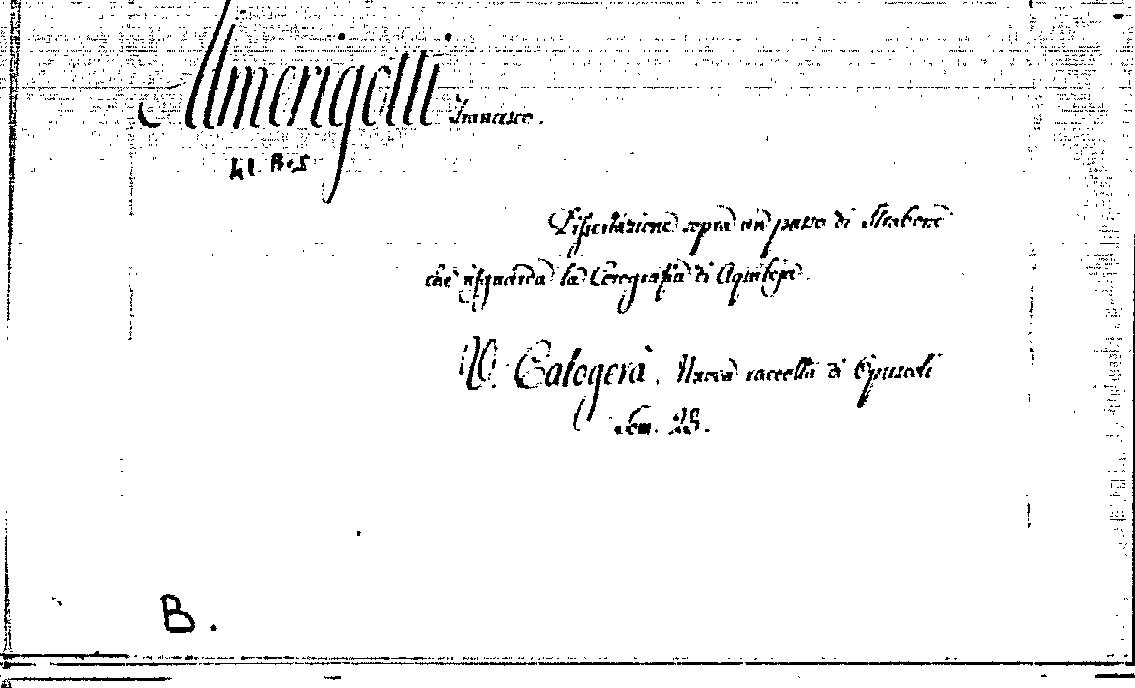 Almerigotti Francesco.
41. B. 25
Dissertazione sopra un passo di Strabone
che risguarda la Corografia di Aquileja.
V. Calogerà. Nuova raccolta di Opuscoli
tom. 28.
B.